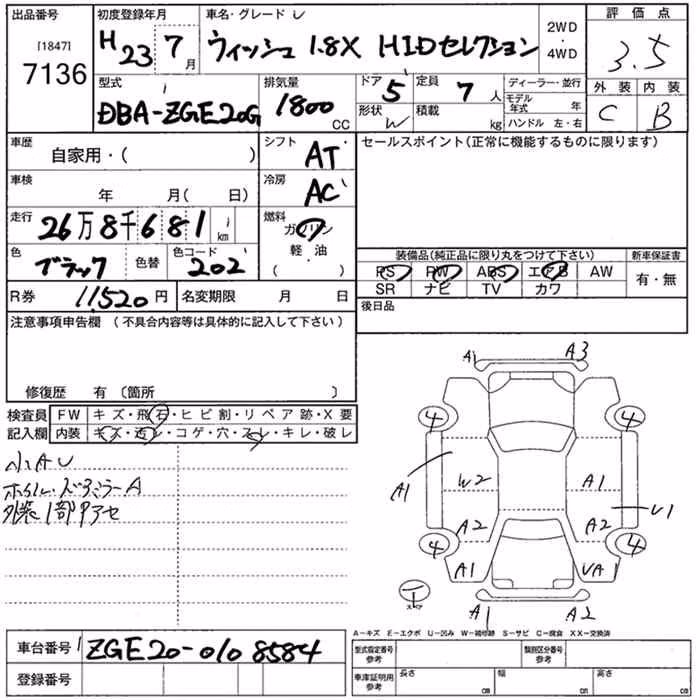 出品番号 初度登録年月 車名・グレード 2WD・4WD 評価点
[1847] 7136 H23年7月 ウィッシュ 1.8X HIDセレクション 3.5
型式 排気量 ドア 5 定員 7人 ディーラー・並行 外装 内装
DBA-ZGE20G 1800cc 形状 W 積載 kg モデル年式 年 C B
ハンドル 左・右
車歴 自家用・( ) シフト AT セールスポイント(正常に機能するものに限ります)
車検 年 月( 日) 冷房 AC
走行 26万8千681km 燃料 ガソリン
軽・油
( )
色 ブラック 色替 色コード 202 装備品(純正品に限り丸をつけて下さい) 新車保証書
PS PW ABS エアB AW 有・無
SR ナビ TV カワ
R券 11,520円 名変期限 月 日 後日品
注意事項申告欄(不具合内容等は具体的に記入して下さい)
修復歴 有〔箇所 〕
検査員 FW キズ・飛石・ヒビ割・リペア跡・X要
記入欄 内装 キズ・汚レ・コゲ・穴・スレ・キレ・破レ
小AU
ホイル・ドアミラーA
外装1部アセ
A1 A3
4 4
A1 W2 A1 U1
A2 A2
4 4
A1 UA1
A1 A2
A-キズ E-エクボ U-凹み W-補修跡 S-サビ C-腐食 XX-交換済
車台番号 ZGE20-0108584 型式指定番号 参考 類別区分番号 参考
登録番号 車庫証明用 参考 長さ cm 幅 cm 高さ cm